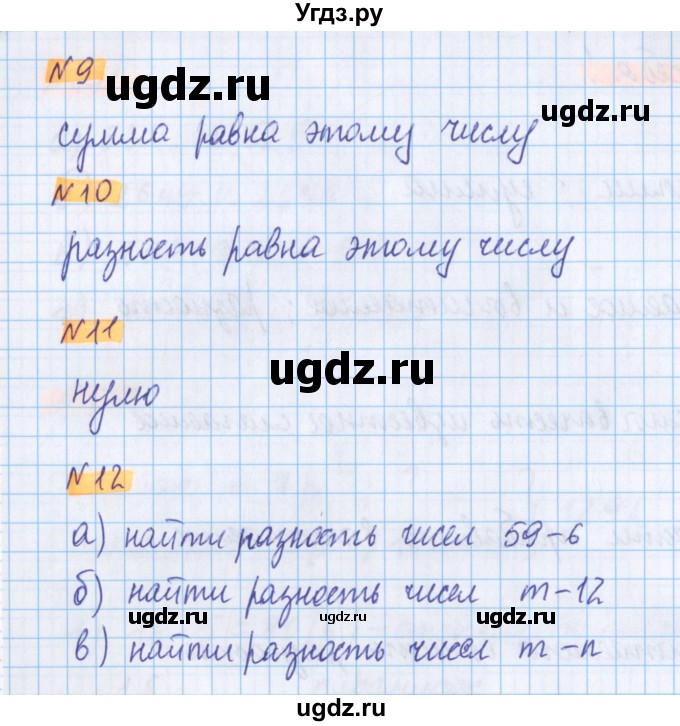 Угдз.ру
№9
ugdz.ru
ugdz.ru
сумма равна этому числу
№10
ugdz.ru
разность равна этому числу
№11
ugdz.ru
нулю
№12
ugdz.ru
а) найти разность чисел 59-6
б) найти разность чисел m-12
ugdz.ru ugdz.ru ugdz.ru
в) найти разность чисел m-n
ugdz.ru